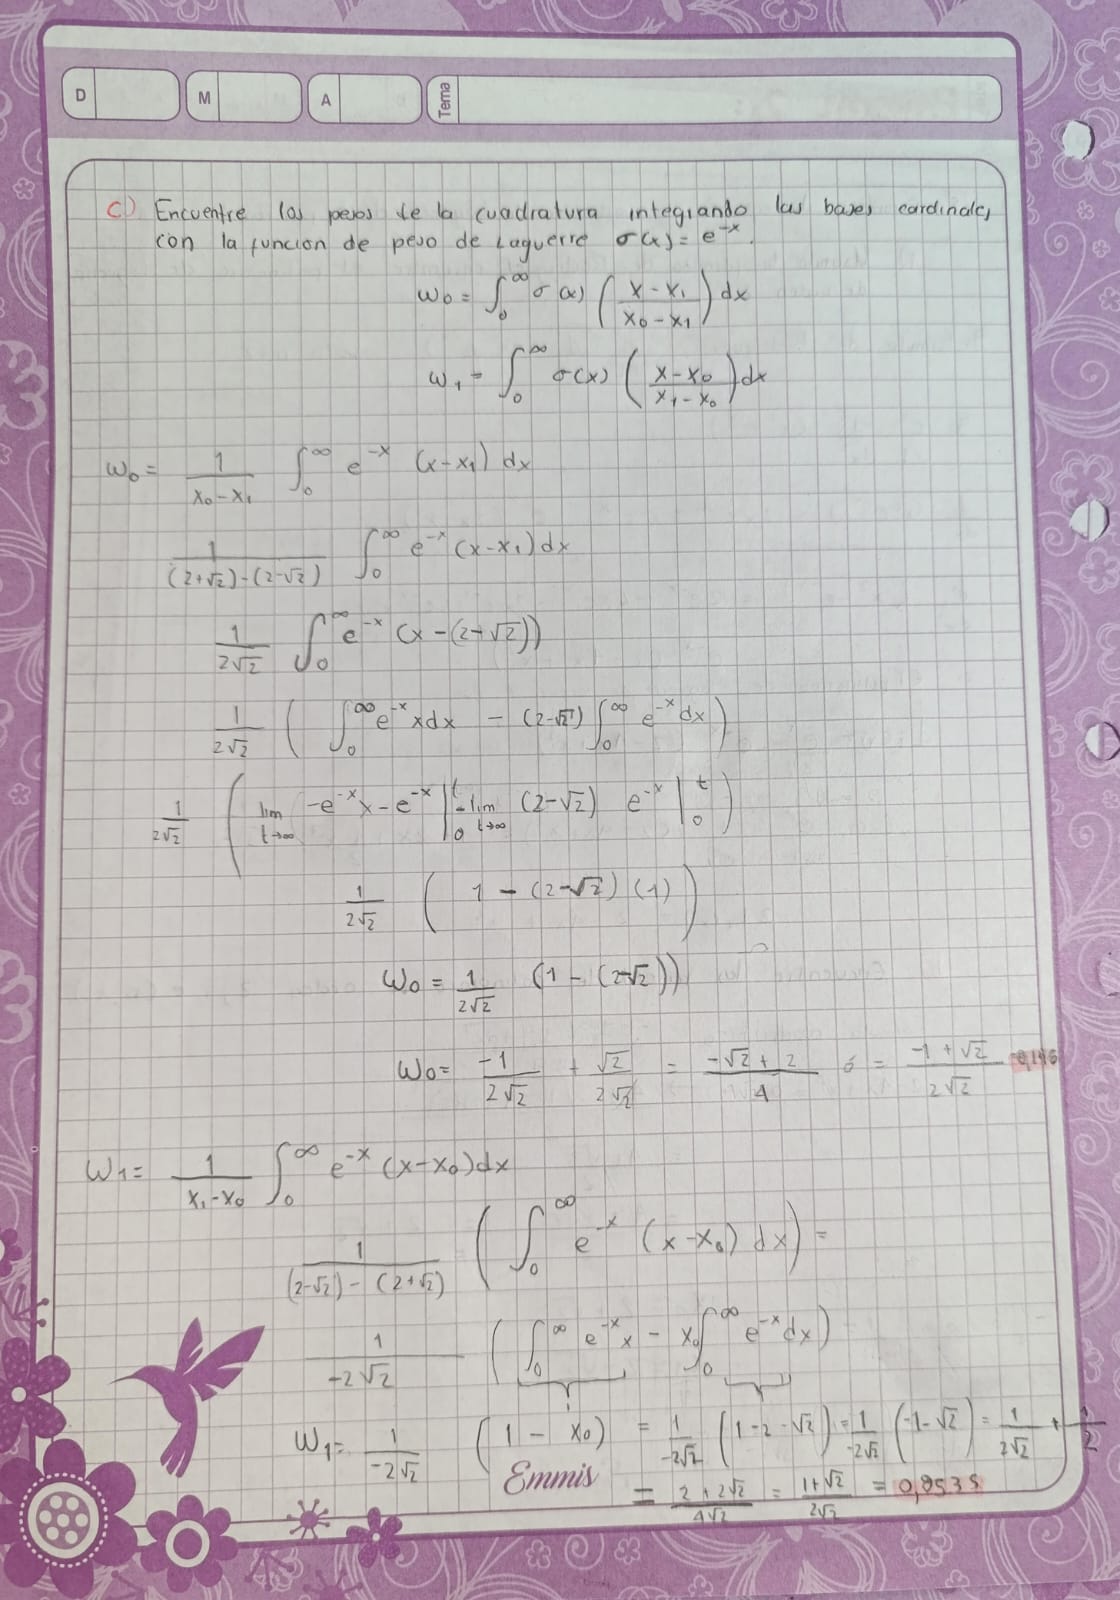 D M A Tema
c) Encuentre los pesos de la cuadratura integrando las bases cardinales
con la funcion de peso de Laguerre σ(x) = e^{-x}.
ω₀ = ∫₀^∞ σ(x) ( (x - x₁) / (x₀ - x₁) ) dx
ω₁ = ∫₀^∞ σ(x) ( (x - x₀) / (x₁ - x₀) ) dx
ω₀ = 1/(x₀ - x₁) ∫₀^∞ e^{-x} (x - x₁) dx
1/((2+√2) - (2-√2)) ∫₀^∞ e^{-x} (x - x₁) dx
1/(2√2) ∫₀^∞ e^{-x} (x - (2-√2))
1/(2√2) ( ∫₀^∞ e^{-x} x dx - (2-√2) ∫₀^∞ e^{-x} dx )
1/(2√2) ( lim t→∞ -e^{-x} x - e^{-x} |₀^t - lim t→∞ (2-√2) e^{-x} |₀^t )
1/(2√2) ( 1 - (2-√2) (1) )
ω₀ = 1/(2√2) (1 - (2-√2))
ω₀ = -1/(2√2) + √2/(2√2) = (-√2 + 2)/4 ó = (-1 + √2)/(2√2) 0,146
ω₁ = 1/(x₁ - x₀) ∫₀^∞ e^{-x} (x - x₀) dx
1/((2-√2) - (2+√2)) ( ∫₀^∞ e^{-x} (x - x₀) dx ) =
1/(-2√2) ( ∫₀^∞ e^{-x} x - x₀ ∫₀^∞ e^{-x} dx )
ω₁ = 1/(-2√2) ( 1 - x₀ ) = 1/(-2√2) ( 1 - 2 - √2 ) = 1/(-2√2) ( -1 - √2 ) = 1/(2√2) + 1/2
= (2 + 2√2)/(4√2) = (1+√2)/(2√2) = 0,8535
Emmis